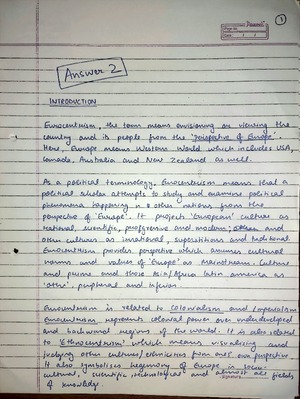 Page No.
Date:
1
Answer 2
INTRODUCTION
Eurocentrism, the term means envisioning or viewing the
country and its people from the 'perspective of Europe'.
Here, Europe means Western World which includes USA,
Canada, Australia and New Zealand as well.
As a political terminology, Eurocentrism means that a
political scholar attempts to study and examine political
phenomena happening in other nations from the
perspective of 'Europe'. It projects 'European' culture as
rational, scientific, progressive and modern; and
other cultures as irrational, superstitious and backward
Eurocentrism provides perspective which assumes cultural
norms and values of Europe as Mainstream Culture
and and those of Asia Africa latin america as
'other', peripheral and inferior.
Eurocentrism is related to Colonialism, and Imperialism
Eurocentrism represents colonial power over undeveloped
and backward regions of the world. It is also related
to 'Ethnocentrism' which means visualizing and
judging other cultures/ethnicities from one's own perspective.
It also symbolises hegemony of Europe in socio-
cultural, scientific technological and almost all fields
of knowledge.